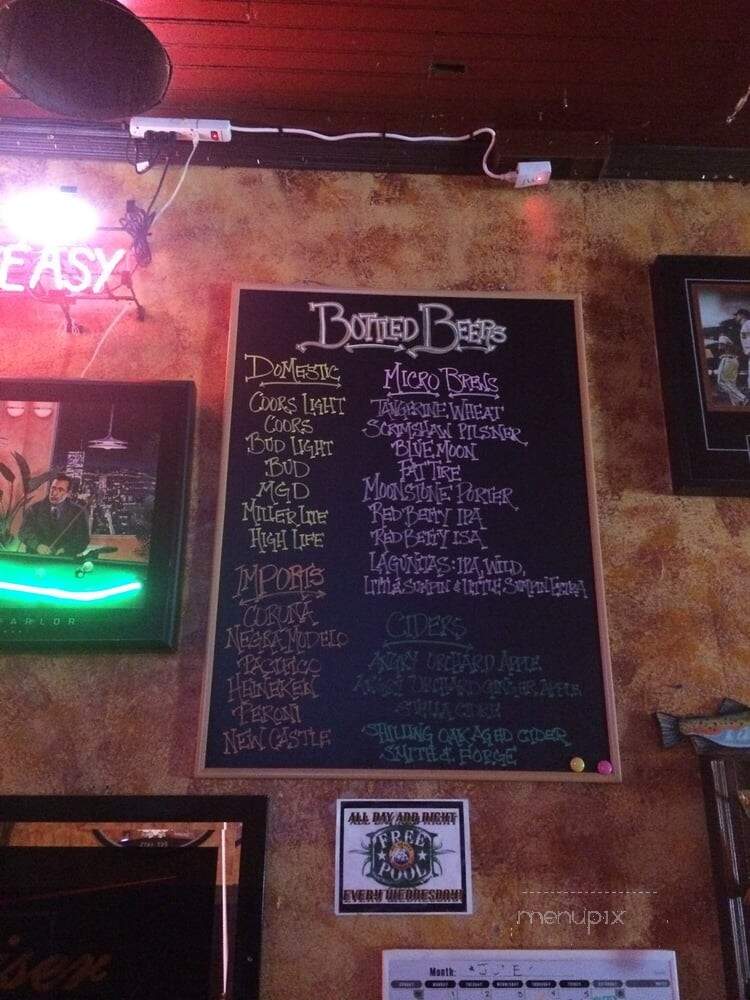 EASY
BOTTLED BEERS
DOMESTIC
COORS LIGHT
COORS
BUD LIGHT
BUD
MGD
MILLER LITE
HIGH LIFE
IMPORTS
CORONA
NEGRA MODELO
PACIFICO
HEINEKEN
PERONI
NEW CASTLE
MICRO BREWS
TANGERINE WHEAT
SCRIMSHAW PILSNER
BLUE MOON
FAT TIRE
MOONSTONE PORTER
RED BETTY IPA
RED BETTY ISA
LAGUNITAS: IPA, WILD,
LITTLE SUMPIN & LITTLE SUMPIN EXTRA
CIDERS
ANGRY ORCHARD APPLE
ANGRY ORCHARD GINGER APPLE
STELLA CIDRE
SHILLING OAK AGED CIDER
SMITH & FORGE
ARLOR
ALL DAY AND NIGHT
FREE
POOL
EVERY WEDNESDAY!
menupix
iser
Month: JUNE
SUNDAY MONDAY TUESDAY WEDNESDAY THURSDAY FRIDAY SATURDAY NOTES